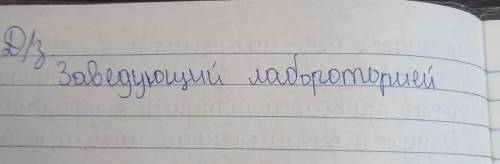 Д/з.
Заведующий лабороторией